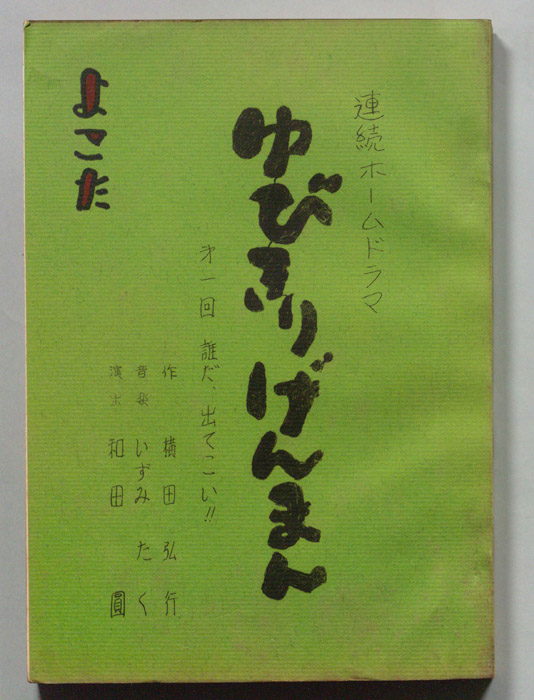 連続ホームドラマ
ゆびきりげんまん
才一回 誰だ、出てこい!!
作 横田弘行
音楽 いずみたく
演出 和田圓
よこた